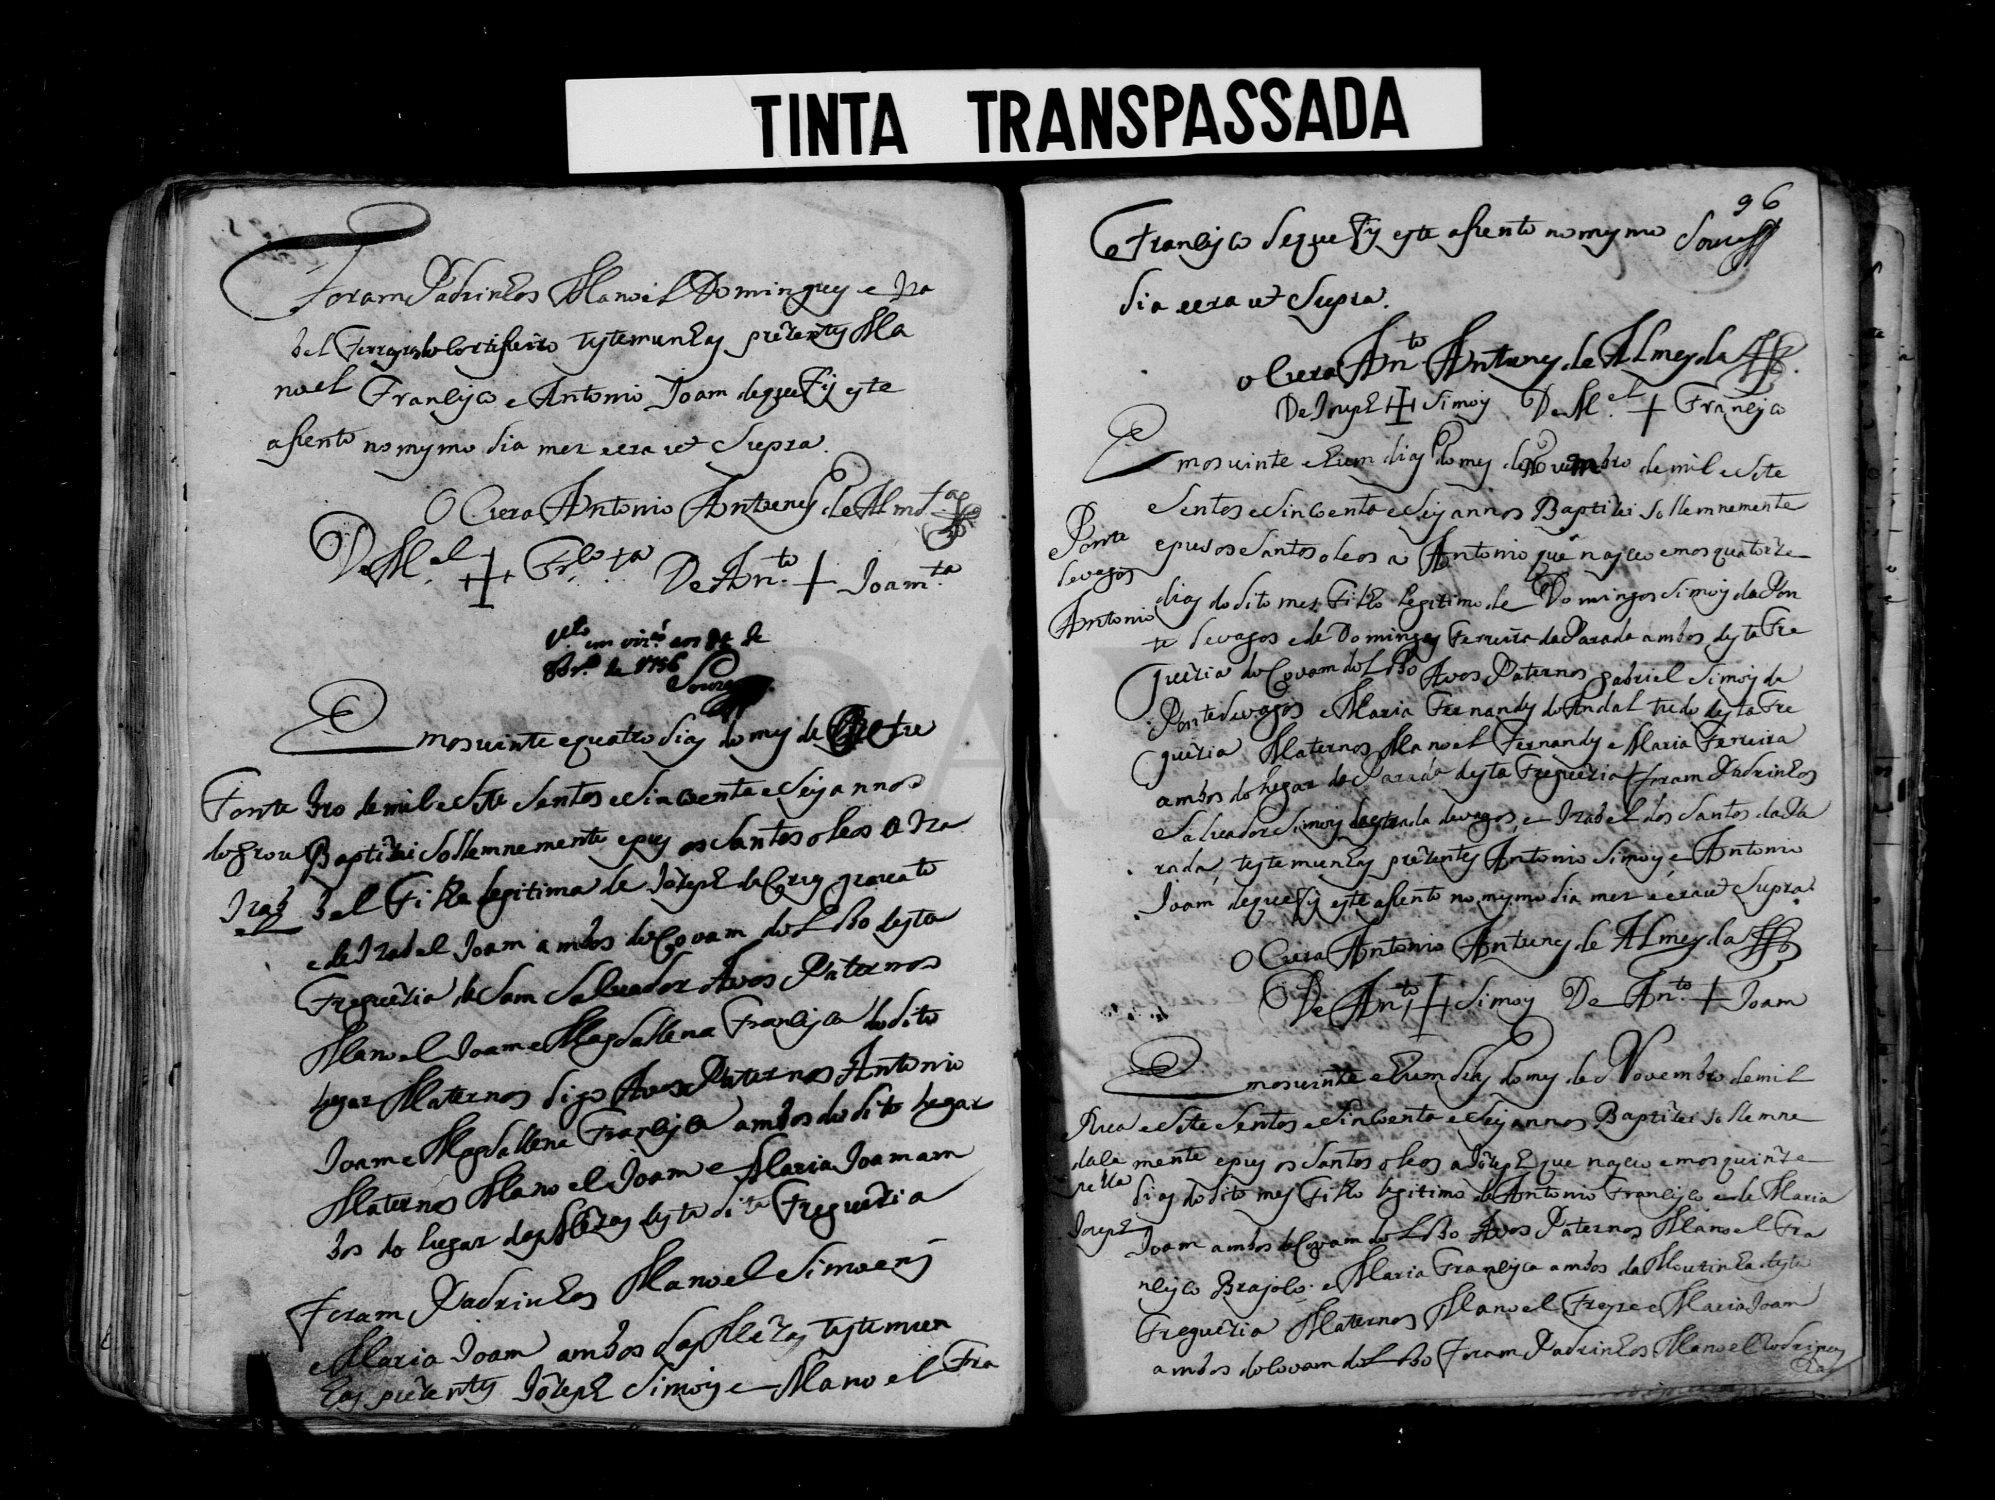 TINTA TRANSPASSADA
Foram Padrinhos Manoel Domingues e Iza
bel Ferreyra do Cortisseiro testemunhas prezentes Ma
noel Francisco e Antonio Joam de que fis este
assento no mesmo dia mez e era ut Supra.
O Cura Antonio Antunes de Almda
De Mel + Frco ta De Anto + Joam ta
Vto em vizam aos de
de 1756
Souza
Em os vinte e quatro dias do mes de Outu
Fonte bro de mil e sete Sentos e sincoenta e seis annos
do Grou Baptizei Sollemnemente e pus os Santos oleos a Iza
Izab bel Filha legitima de Jozeph da Crus
e de Izabel Joam ambos do Covam do Lobo desta
Freguezia de Sam Salvador Avos Paternos
Manoel Joam e Magdallena Francisca do dito
lugar Maternos digo Avos Paternos Antonio
Joam e Magdallena Francisca ambos do dito lugar
Maternos Manoel Joam e Maria Joam am
bos do lugar das Mezas desta dita Freguezia
Foram Padrinhos Manoel Simoens
e Maria Joam ambos das Mezas testemun
has prezentes Jozeph Simois e Manoel Fra
96
Francisco de que fis este assento no mesmo Souza
dia e era ut Supra.
o Cura Anto Antunes de Almeyda
De Joseph + Simois De Mel + Francisco
Em os vinte e hum dias do mes de Novembro de mil e sete
Sentos e Sincoenta e Seis annos Baptizei Sollemnemente
Ponte e pus os Santos oleos a Antonio que nasceo em os quatorze
de vagos dias do dito mes Filho legitimo de Domingos Simois da Pon
Antonio te de vagos e de Domingas Ferreira da Parada ambos desta Fre
guezia do Covam do Lobo Avos Paternos Gabriel Simois da
Ponte de vagos e Maria Fernandes do Andal tudo desta Fre
guezia Maternos Manoel Fernandes e Maria Ferreira
ambos do lugar da Parada desta Freguezia foram Padrinhos
Salvador Simois da de vagos, e Izabel dos Santos da Pa
rada, testemunhas prezentes Antonio Simois, e Antonio
Joam de que fis este assento no mesmo dia mez e era ut Supra.
O Cura Antonio Antunes de Almeyda
De Anto + Simois De Anto + Joam
Em os vinte e hum dias do mes de Novembro de mil
Rua e sete Sentos e Sincoenta e Seis annos Baptizei Sollemne
da Ca mente e pus os Santos oleos a Jozeph que nasceo em os quinze
pella dias do dito mes Filho legitimo de Antonio Francisco e de Maria
Joseph Joam ambos do Covam do Lobo Avos Paternos Manoel Fra
ncisco Brajolo e Maria Francisca ambos da Moutinha desta
Freguezia Maternos Manoel Freyre e Maria Joam
ambos do Covam do Lobo Foram Padrinhos Manoel Rodrigues